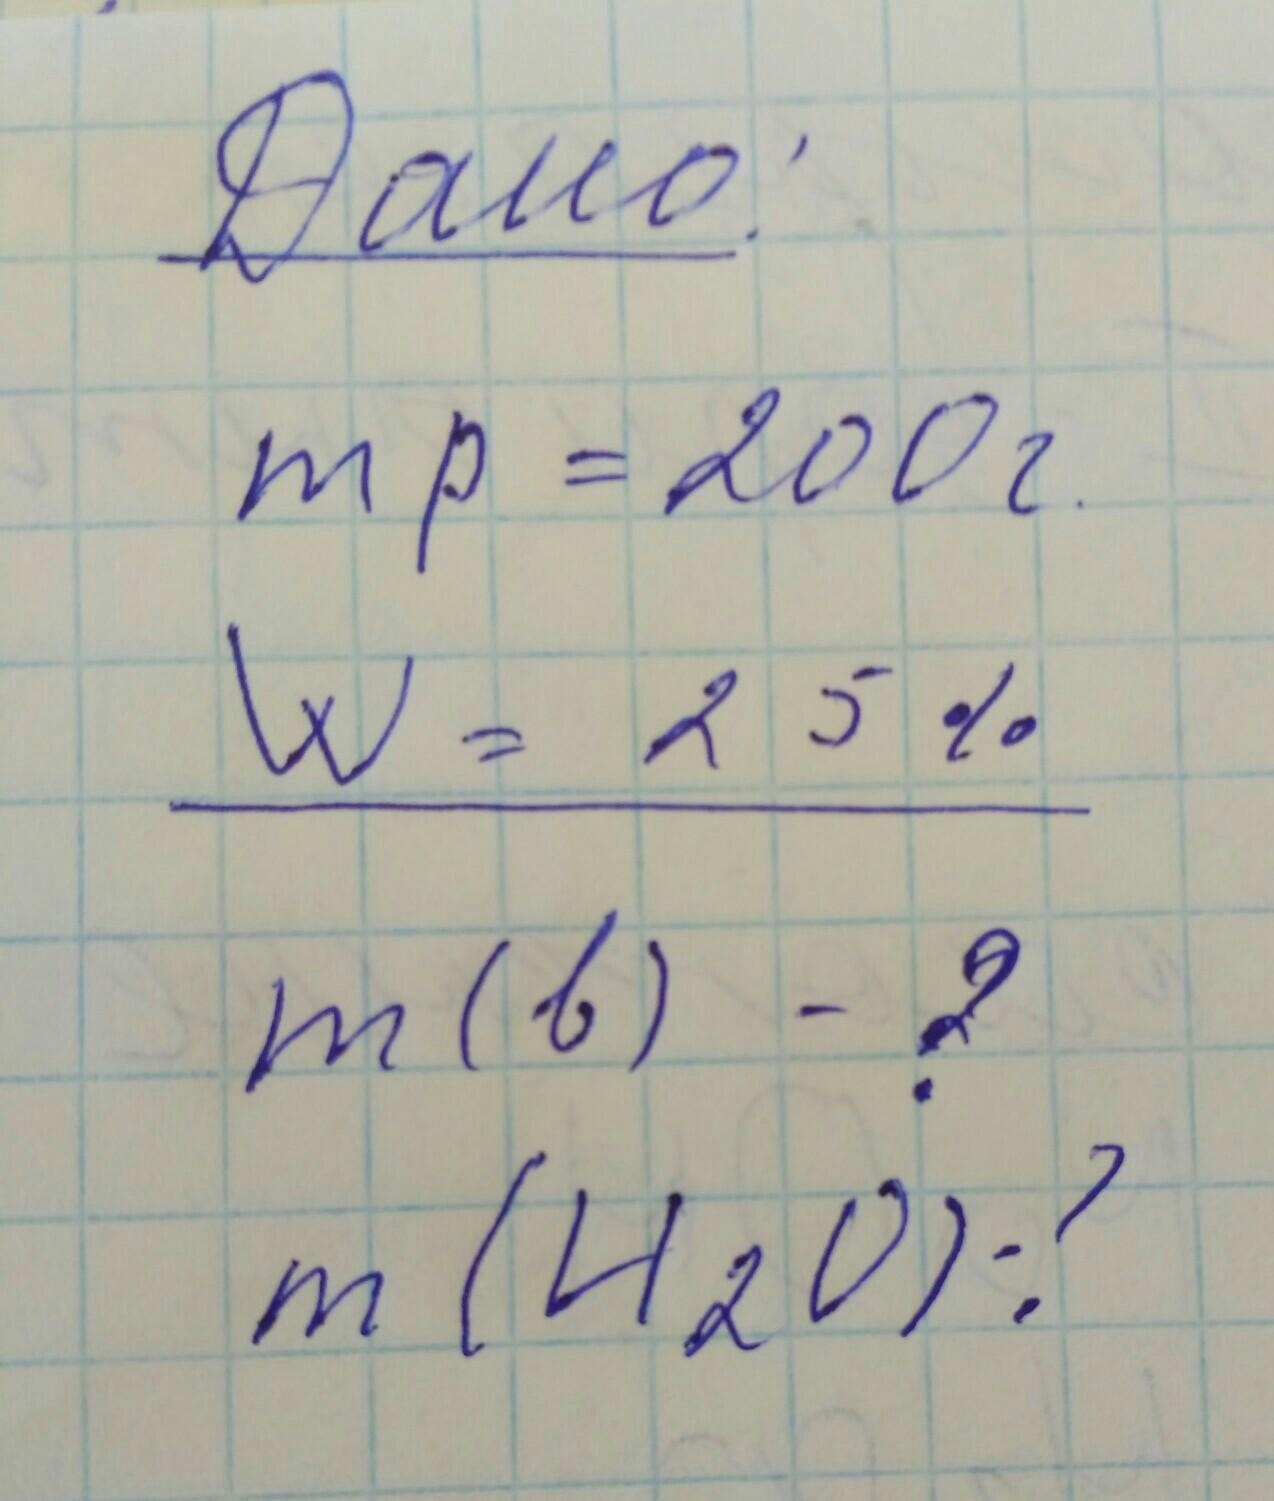 Дано:
mр = 200г.
W = 25%
m(в) - ?
m(H2O) - ?